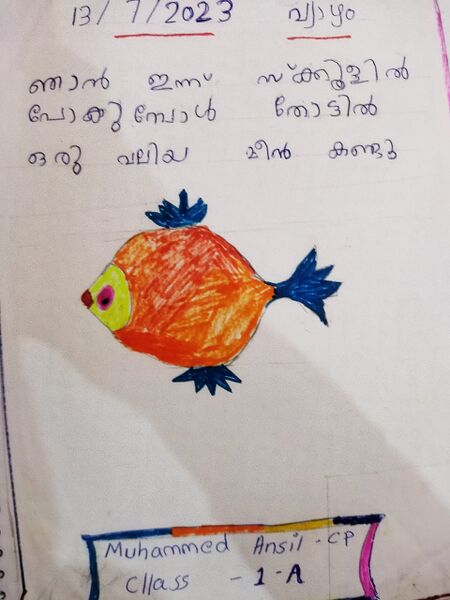 13/7/2023 വ്യാഴം
ഞാൻ ഇന്ന് സ്ക്കൂളിൽ
പോകുമ്പോൾ തോട്ടിൽ
ഒരു വലിയ മീൻ കണ്ടു
Muhammed Ansil - CP
Cllass - 1-A